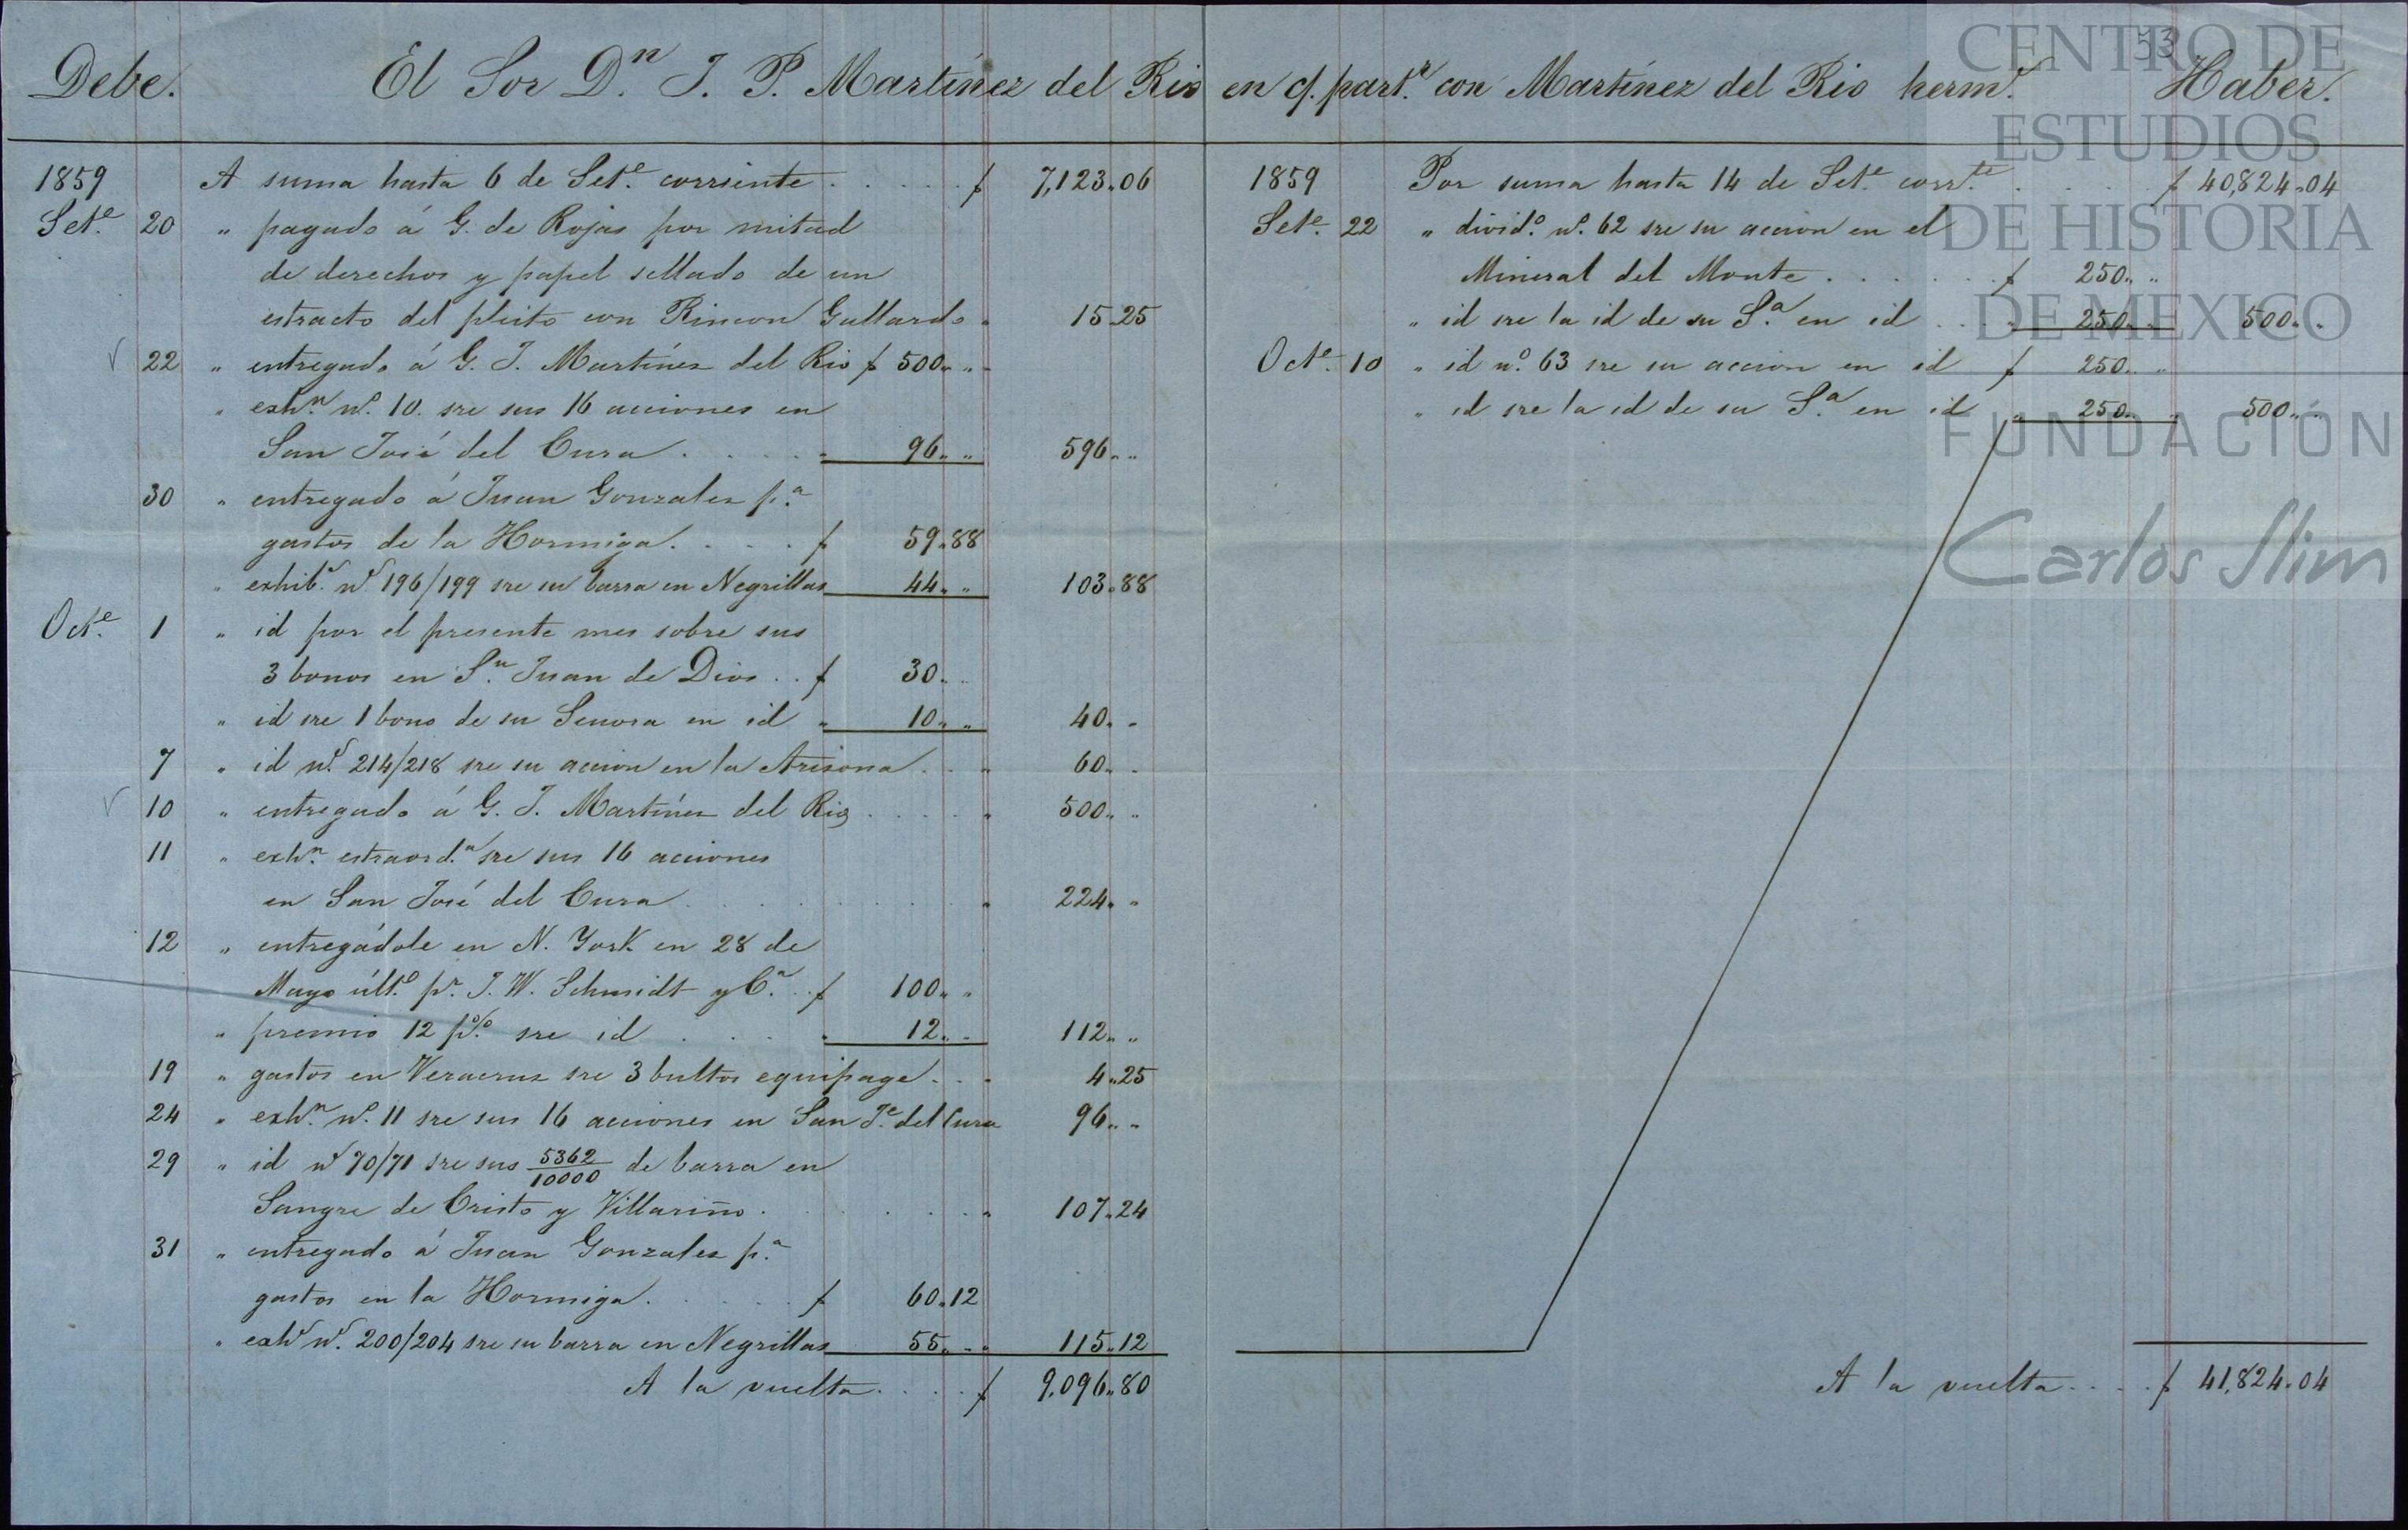 Debe. El Sor Dn. J. P. Martínez del Rio en c/. part.r con Martínez del Rio herm.s Haber.
53
1859 A suma hasta 6 de Set.e corriente . . . . . $ 7,123.06
Set.e 20 " pagado á G. de Rojas por mitad
de derechos y papel sellado de un
estracto del pleito con Rincon Gallardo " 15.25
√ 22 " entregado á G. J. Martínez del Rio $ 500 " "
" exh.n n.o 10. sre sus 16 acciones en
San José del Cura . . . . " 96 " " 596 " "
30 " entregado á Juan Gonzalez p.a
gastos de la Hormiga . . . . $ 59.88
" exhib.s n.s 196/199 sre su barra en Negrillas 44 " " 103.88
Oct.e 1 " id por el presente mes sobre sus
3 bonos en S.n Juan de Dios . . $ 30 " "
" id sre 1 bono de su Senora en id " 10 " " 40 " "
7 " id n.s 214/218 sre su accion en la Arizona . . " 60 " "
√ 10 " entregado á G. J. Martínez del Rio . . . . " 500 " "
11 " exh.n estraord.a sre sus 16 acciones
en San José del Cura . . . . . . . " 224 " "
12 " entregádole en N. York en 28 de
Mayo últ.o p.r J. W. Schmidt y C.a . . $ 100 " "
" premio 12 p% sre id . . . . " 12 " " 112 " "
19 " gastos en Veracruz sre 3 bultos equipage . . " 4.25
24 " exh.n n.o 11 sre sus 16 acciones en San J.e del Cura 96 " "
29 " id n.s 70/71 sre sus 5362/10000 de barra en
Sangre de Cristo y Villariño . . . . . . " 107.24
31 " entregado á Juan Gonzalez p.a
gastos en la Hormiga . . . . . $ 60.12
" exh.s n.s 200/204 sre su barra en Negrillas 55 " " 115.12
A la vuelta . . . . $ 9,096.80
1859 Por suma hasta 14 de Set.e corr.te . . . . . $ 40,824.04
Set.e 22 " divid.o n.o 62 sre su accion en el
Mineral del Monte . . . . . . $ 250 " "
" id sre la id de su S.a en id . . . " 250 " " 500 " "
Oct.e 10 " id n.o 63 sre su accion en id $ 250 " "
" id sre la id de su S.a en id " 250 " " 500 " "
A la vuelta . . . . $ 41,824.04
CENTRO DE
ESTUDIOS
DE HISTORIA
DE MEXICO
FUNDACIÓN
Carlos Slim